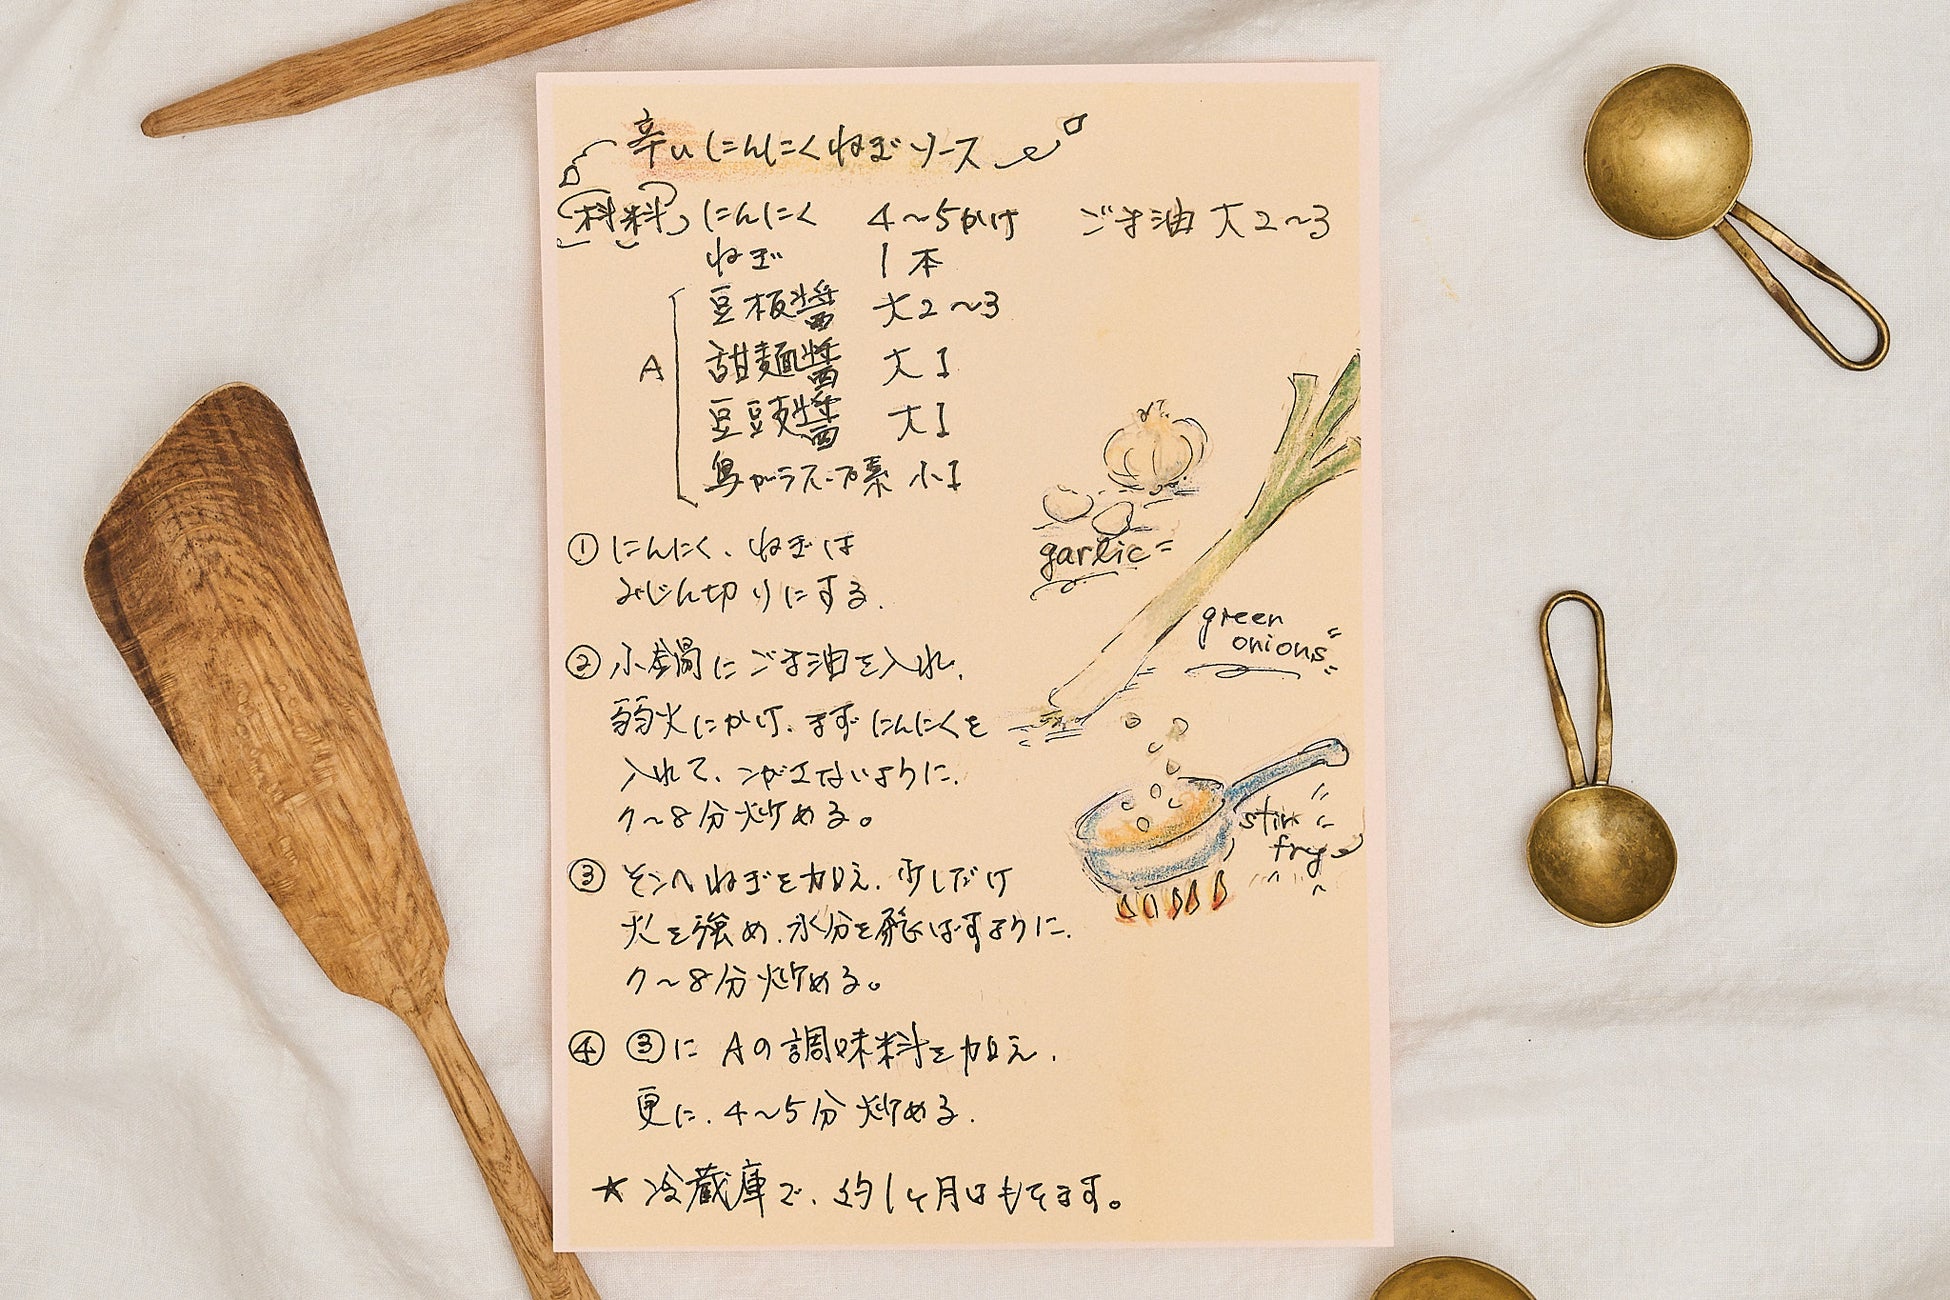 辛いにんにくねぎソース
材料 にんにく 4〜5かけ ごま油 大2〜3
ねぎ 1本
A
豆板醤 大2〜3
甜麺醤 大1
豆豉醤 大1
鳥ガラスープ素 小1
① にんにく、ねぎは
みじん切りにする.
② 小鍋にごま油を入れ、
弱火にかけ、まずにんにくを
入れて、こがさないように、
7〜8分炒める。
③ そこへねぎを加え、少しだけ
火を強め、水分を飛ばすように、
7〜8分炒める。
④ ③に Aの調味料を加え、
更に、4〜5分炒める.
★ 冷蔵庫で、約1ヶ月はもてます。
garlic
green
onions
stir
fry